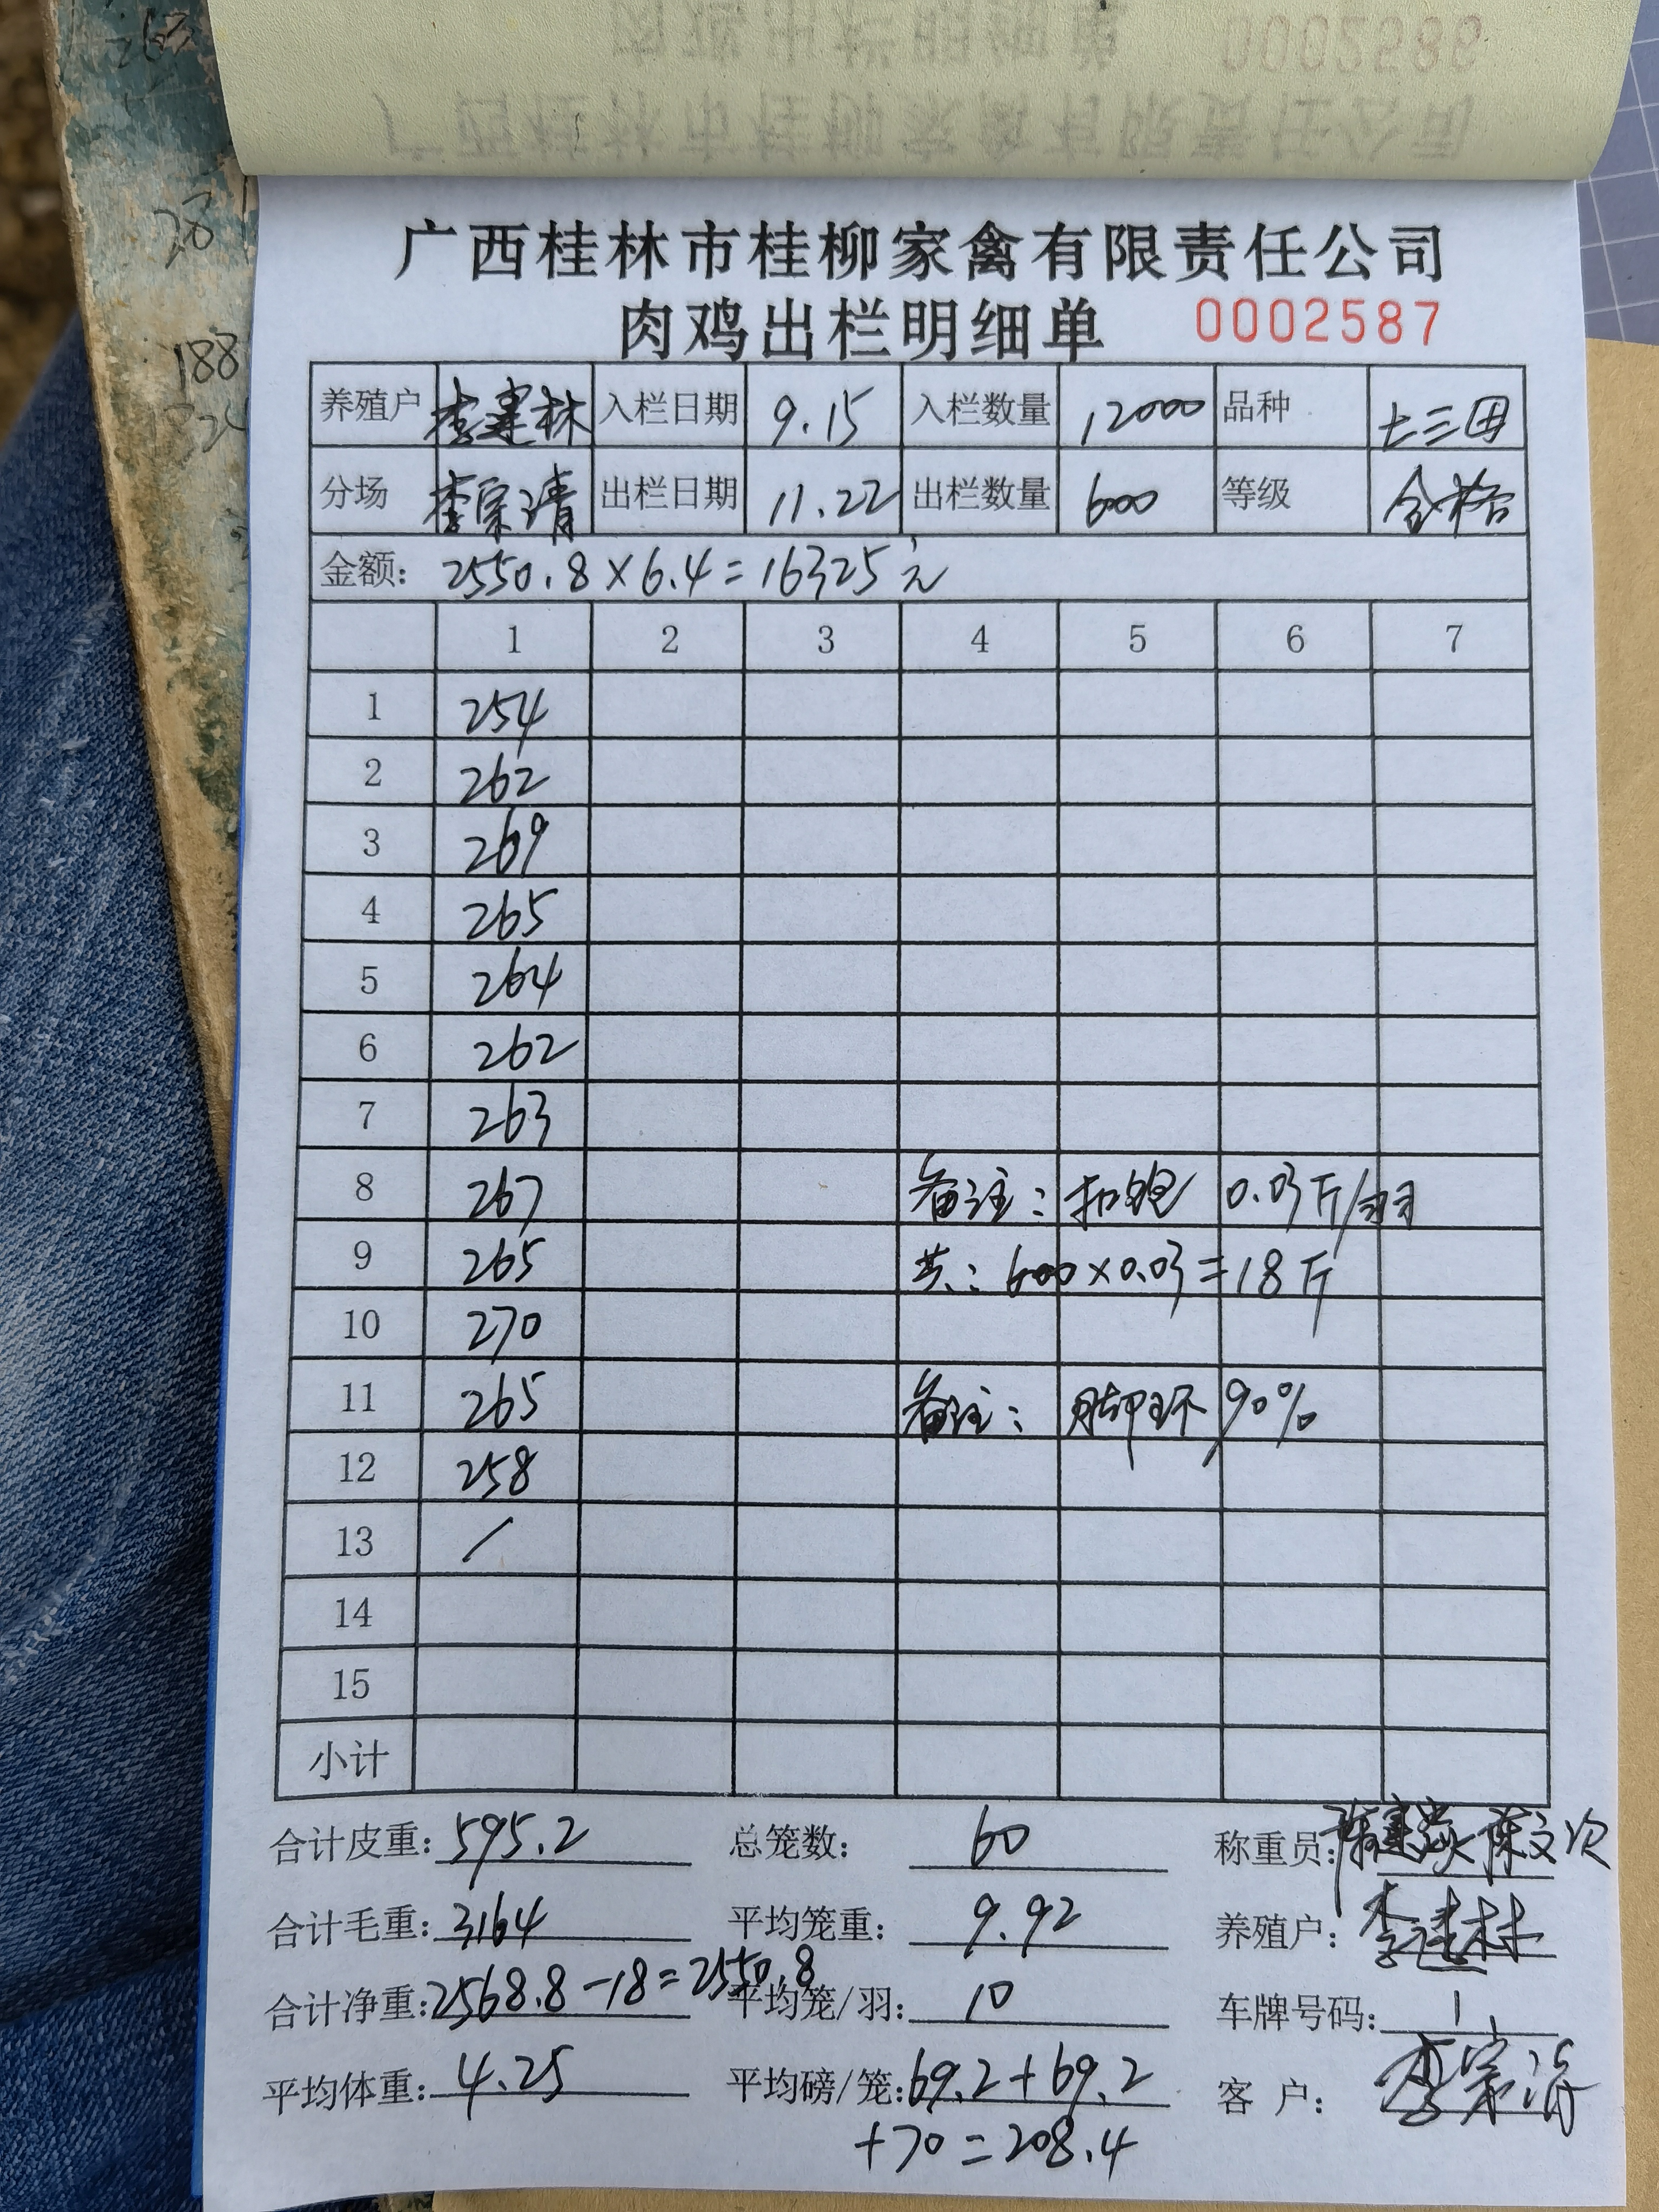 广西桂林市桂柳家禽有限责任公司
肉鸡出栏明细单 0002587
养殖户 李建林 入栏日期 9.15 入栏数量 12000 品种 土三田
分场 李宗清 出栏日期 11.22 出栏数量 600 等级 合格
金额: 2550.8×6.4=16325元
1 2 3 4 5 6 7
1 254
2 262
3 269
4 265
5 264
6 262
7 263
8 267 备注: 扣饱 0.03斤/羽
9 265 共: 600×0.03=18斤
10 270
11 265 备注: 脚环 90%
12 258
13 /
14
15
小计
合计皮重: 595.2 总笼数: 60 称重员: 陈文次
合计毛重: 3164 平均笼重: 9.92 养殖户: 李建林
合计净重: 2568.8-18=2550.8 平均笼/羽: 10 车牌号码: 1
平均体重: 4.25 平均磅/笼: 69.2+69.2 客户: 李宗清
+70=208.4